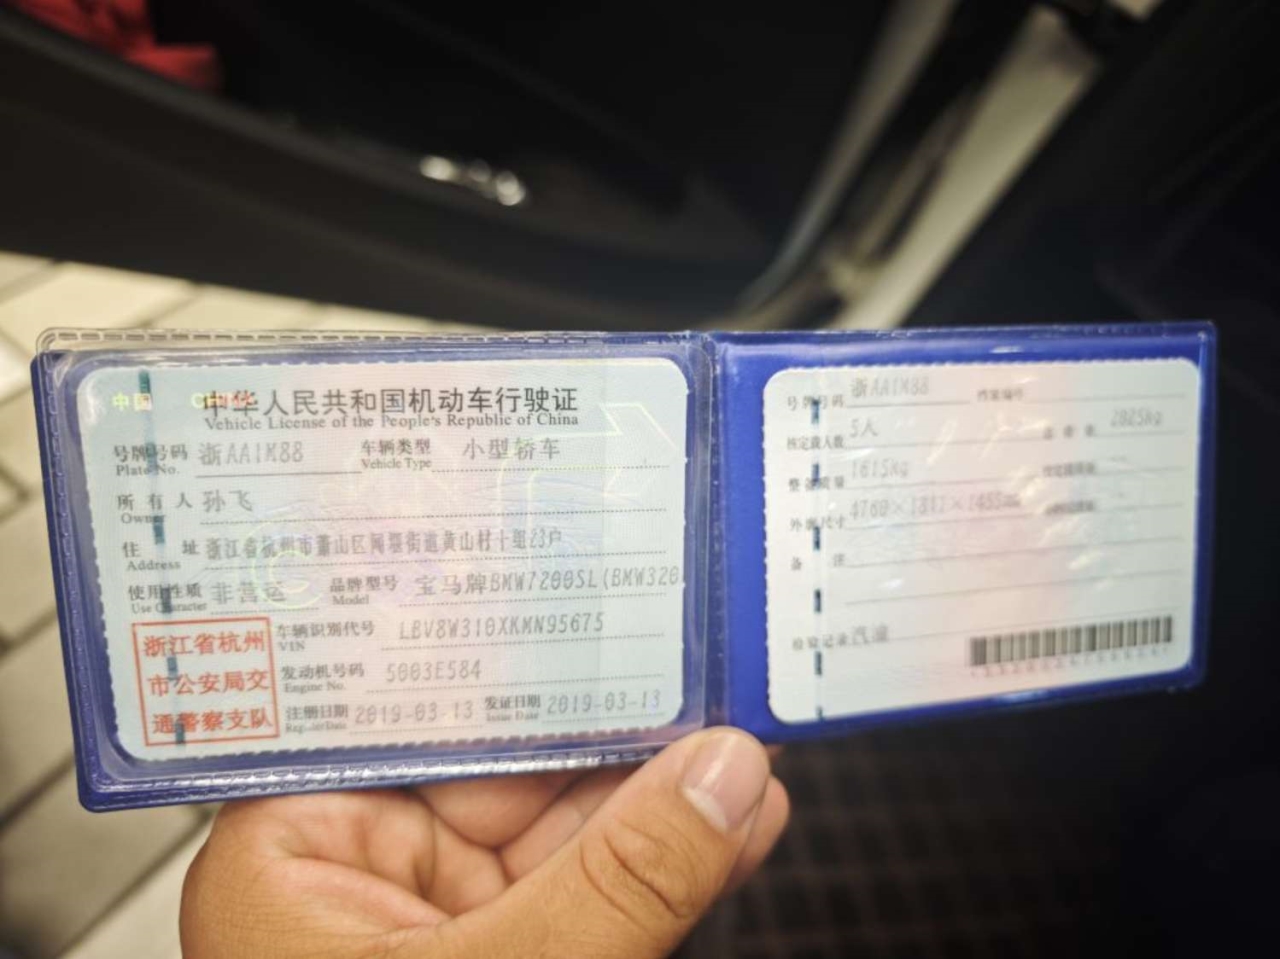 中华人民共和国机动车行驶证
Vehicle License of the People's Republic of China
号牌号码 浙AA1M88 车辆类型 小型轿车
Plate No. Vehicle Type
所有人 孙飞
Owner
住址 浙江省杭州市萧山区闻堰街道黄山村十组23户
Address
使用性质 非营运 品牌型号 宝马牌BMW7200SL(BMW320
Use Character Model
浙江省杭州
市公安局交
通警察支队
车辆识别代号 LBV8W310XKMN95675
VIN
发动机号码 5003E584
Engine No.
注册日期 2019-03-13 发证日期 2019-03-13
Register Date Issue Date
号牌号码 浙AA1M88 档案编号
核定载人数 5人 总质量
整备质量 1615kg
外廓尺寸
备注
检验记录 汽油